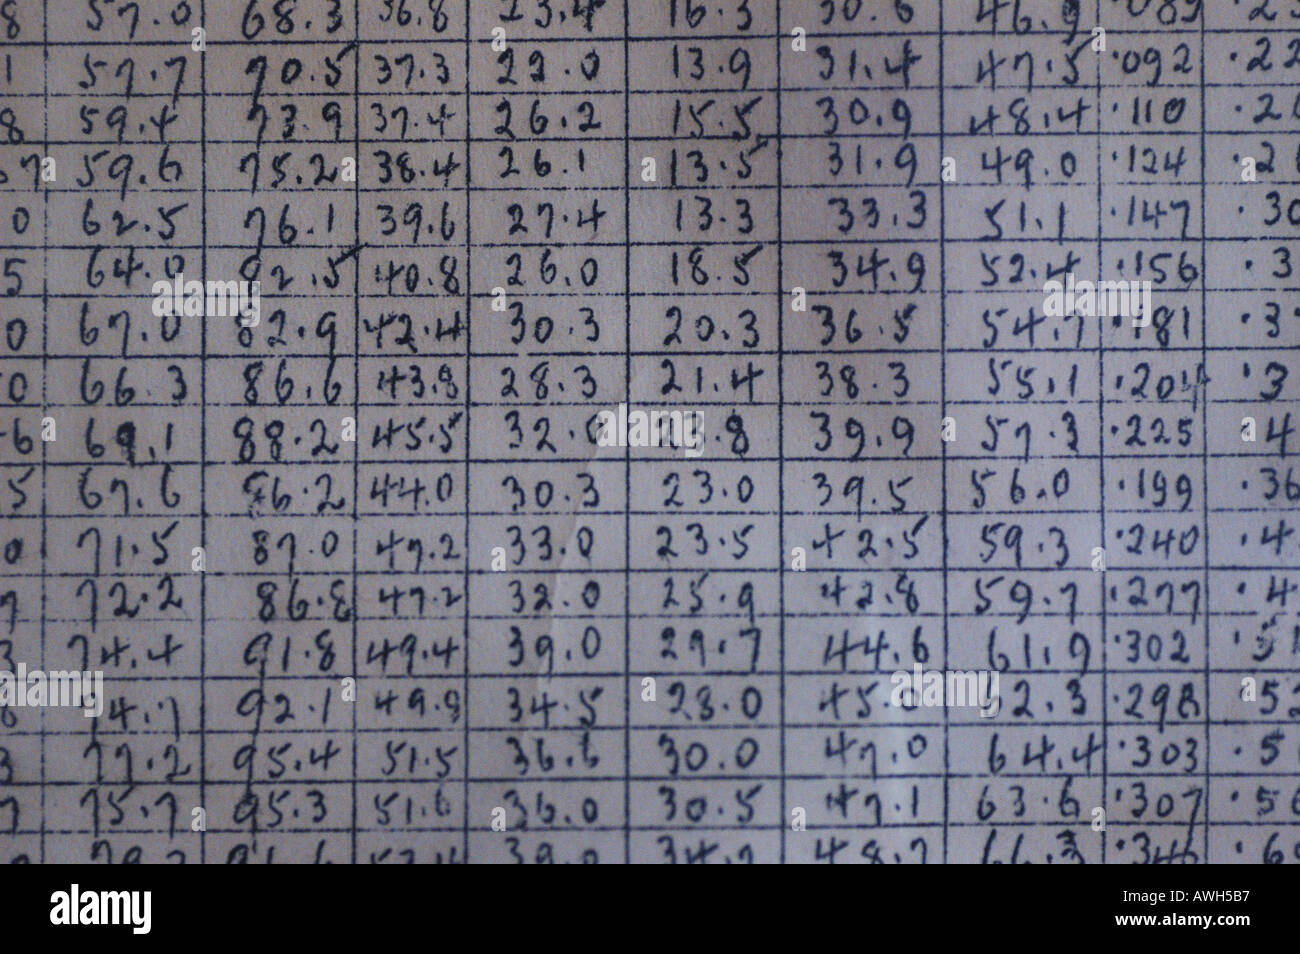 8 57.0 68.3 36.8 23.4 16.3 30.6 46.9 .089
1 57.7 70.5 37.3 22.0 13.9 31.4 47.5 .092 .22
8 59.4 73.9 37.4 26.2 15.5 30.9 48.4 .110 .2
7 59.6 75.2 38.4 26.1 13.5 31.9 49.0 .124 .2
0 62.5 76.1 39.6 27.4 13.3 33.3 51.1 .147 .30
5 64.0 82.5 40.8 26.0 18.5 34.9 52.4 .156 .3
0 67.0 82.9 42.4 30.3 20.3 36.5 54.7 .181 .3
0 66.3 86.6 43.8 28.3 21.4 38.3 55.1 .204 .3
6 69.1 88.2 45.5 32.0 23.8 39.9 57.3 .225 .4
5 67.6 86.2 44.0 30.3 23.0 39.5 56.0 .199 .36
0 71.5 87.0 47.2 33.0 23.5 42.5 59.3 .240 .4
7 72.2 86.8 47.2 32.0 25.9 42.8 59.7 .277 .4
3 74.4 91.8 49.4 39.0 29.7 44.6 61.9 .302
8 74.7 92.1 49.8 34.5 28.0 45.0 62.3 .298 .52
3 77.2 95.4 51.5 36.6 30.0 47.0 64.4 .303 .5
7 75.7 95.3 51.6 36.0 30.5 47.1 63.6 .307 .56
39.0 34.7 48.7 66.3
alamy
Image ID: AWH5B7
www.alamy.com